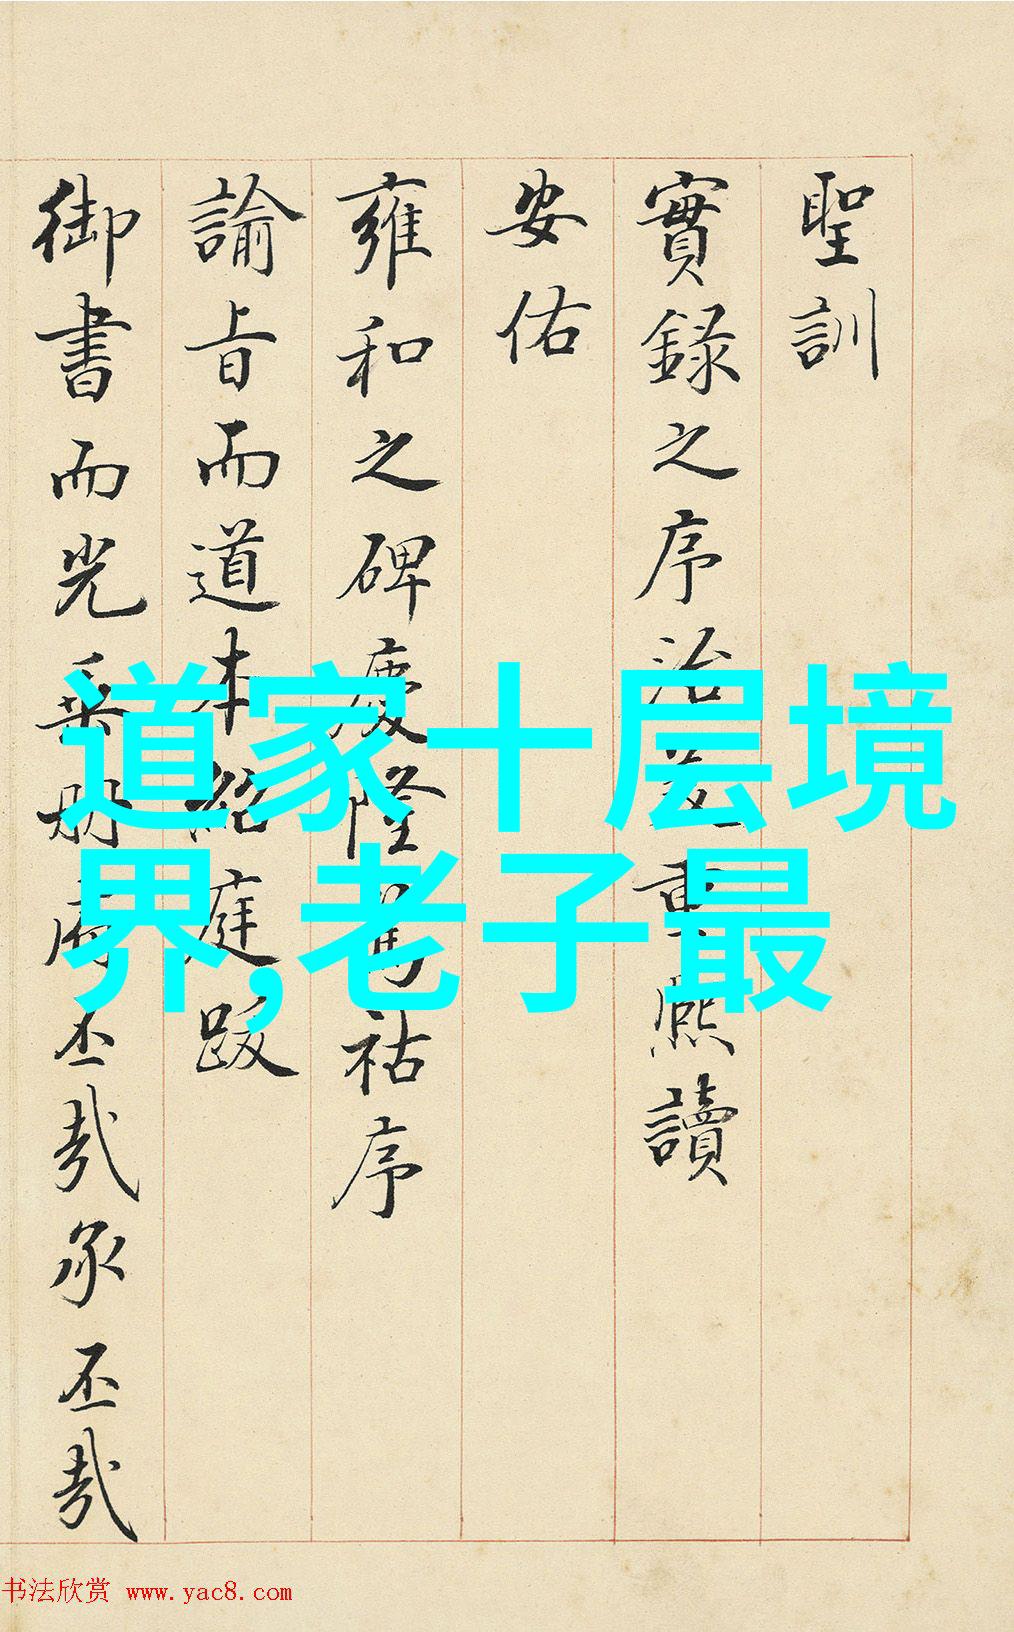 聖訓
實錄之序治益重熙讀
安佑
雍和之碑慶隆篤祜序
諭旨而道本紹庭跋
御書而光采冊府丕哉承丕哉
道家十层境
界,老子最
书法欣赏 www.yac8.com